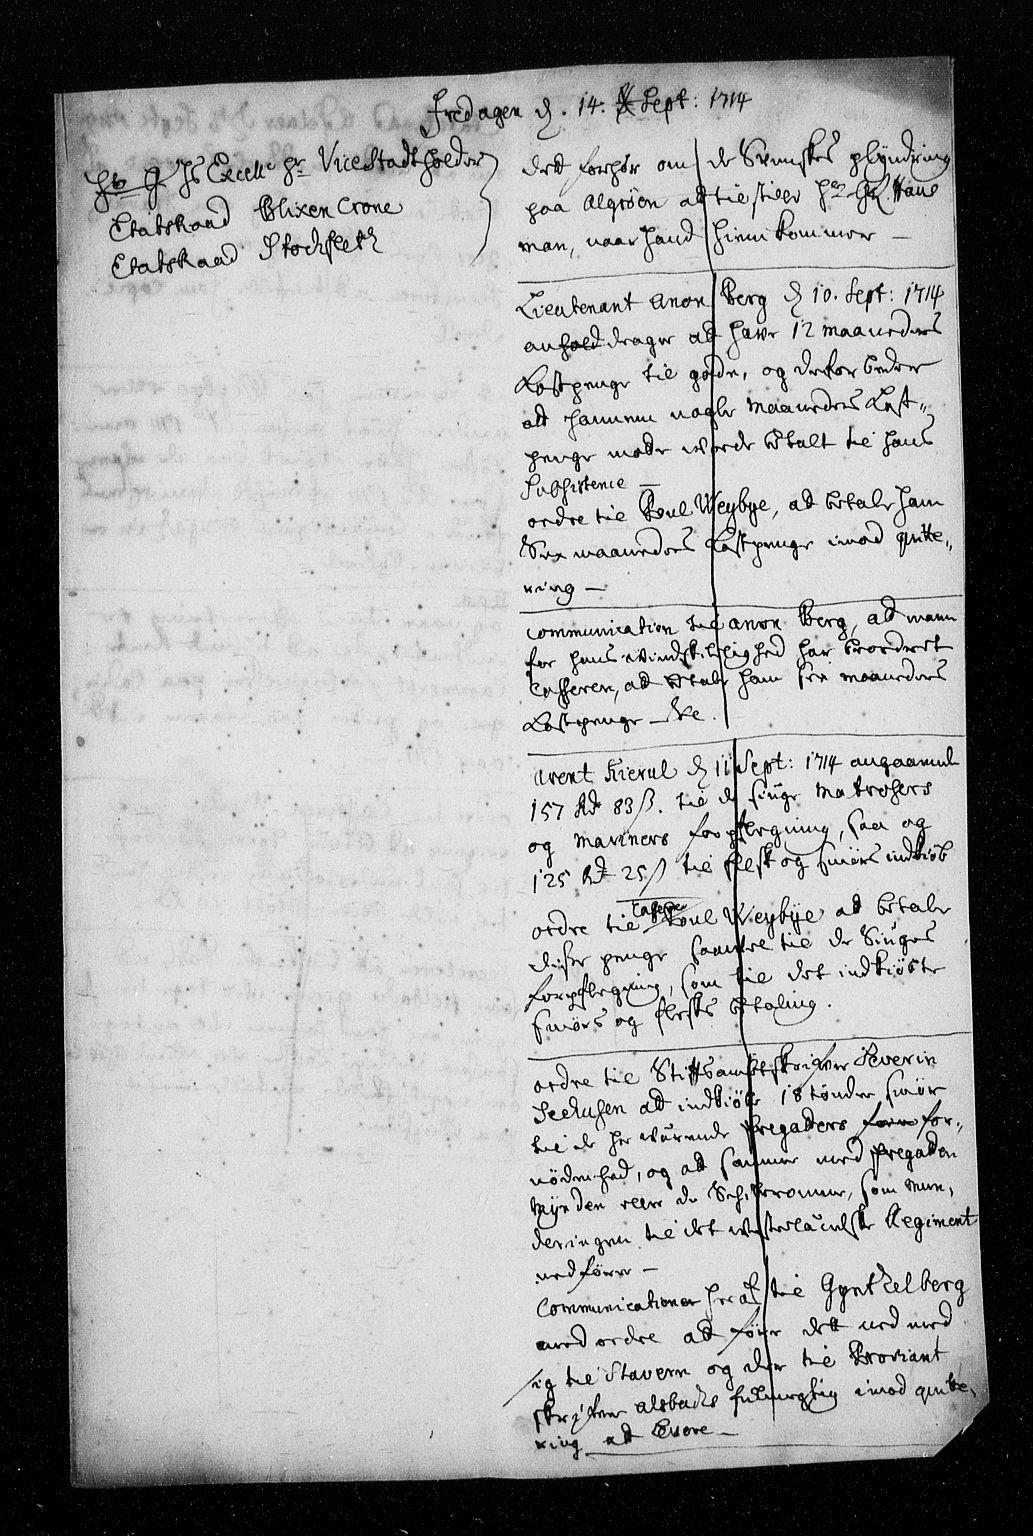 Fredagen d. 14. Sept: 1714
Hs Excell: Hr Vice Stadtholder
Etatsraad Blixencrone
Etatsraad Stockfleth
dett forhør om de Svenskes plyndring
paa Algrøen at tilstille Hr Haus
man, naar hand hiem kommer —
Lieutenant Anon Berg d 10. Sept: 1714
andrager at have 12 maaneders
Kostpenge til gode, og derfor beder
att hannem nogle Maaneders Kost-
penge motte worde betalt til hans
Subsistence —
ordre til Poul Weybye, at betale ham
Sex maaneders Kostpenge imod qvitte-
ring —
Communication til Anon Berg, at mann
for hans windskibelighed har beordret
Casseren, at betale ham sex maaneders
Kostpenge — &c.
Arent Kierul d 11 Sept: 1714 angaaende
157 Rd 83 ß. til de siuge Matrosers
og Mariners forpflegning, saa og
125 Rd 25 ß til flesk og smørs indkiøb
ordre til Casserer Poul Weybye at betale
disse penge saavel til de Siuges
forpflegning, som til det indkiøbte
smørs og flesks betaling.
ordre til Stiftsambtskrifver Severin
Seehusen at indkiøbe 18 tønder smør
til de her wærende Fregatters for-
nødenhed, og at samme med Fregatten
Mynden eller de Schibrome, som Mun-
deringen til det westerlandske Regiment
nedfører —
Communication heraf til Gyntelberg
med ordre att føre dett ned med
sig til Stavern og der til Proviant
skrifver Albades fulmegtig imod qvitte-
ring at levere —